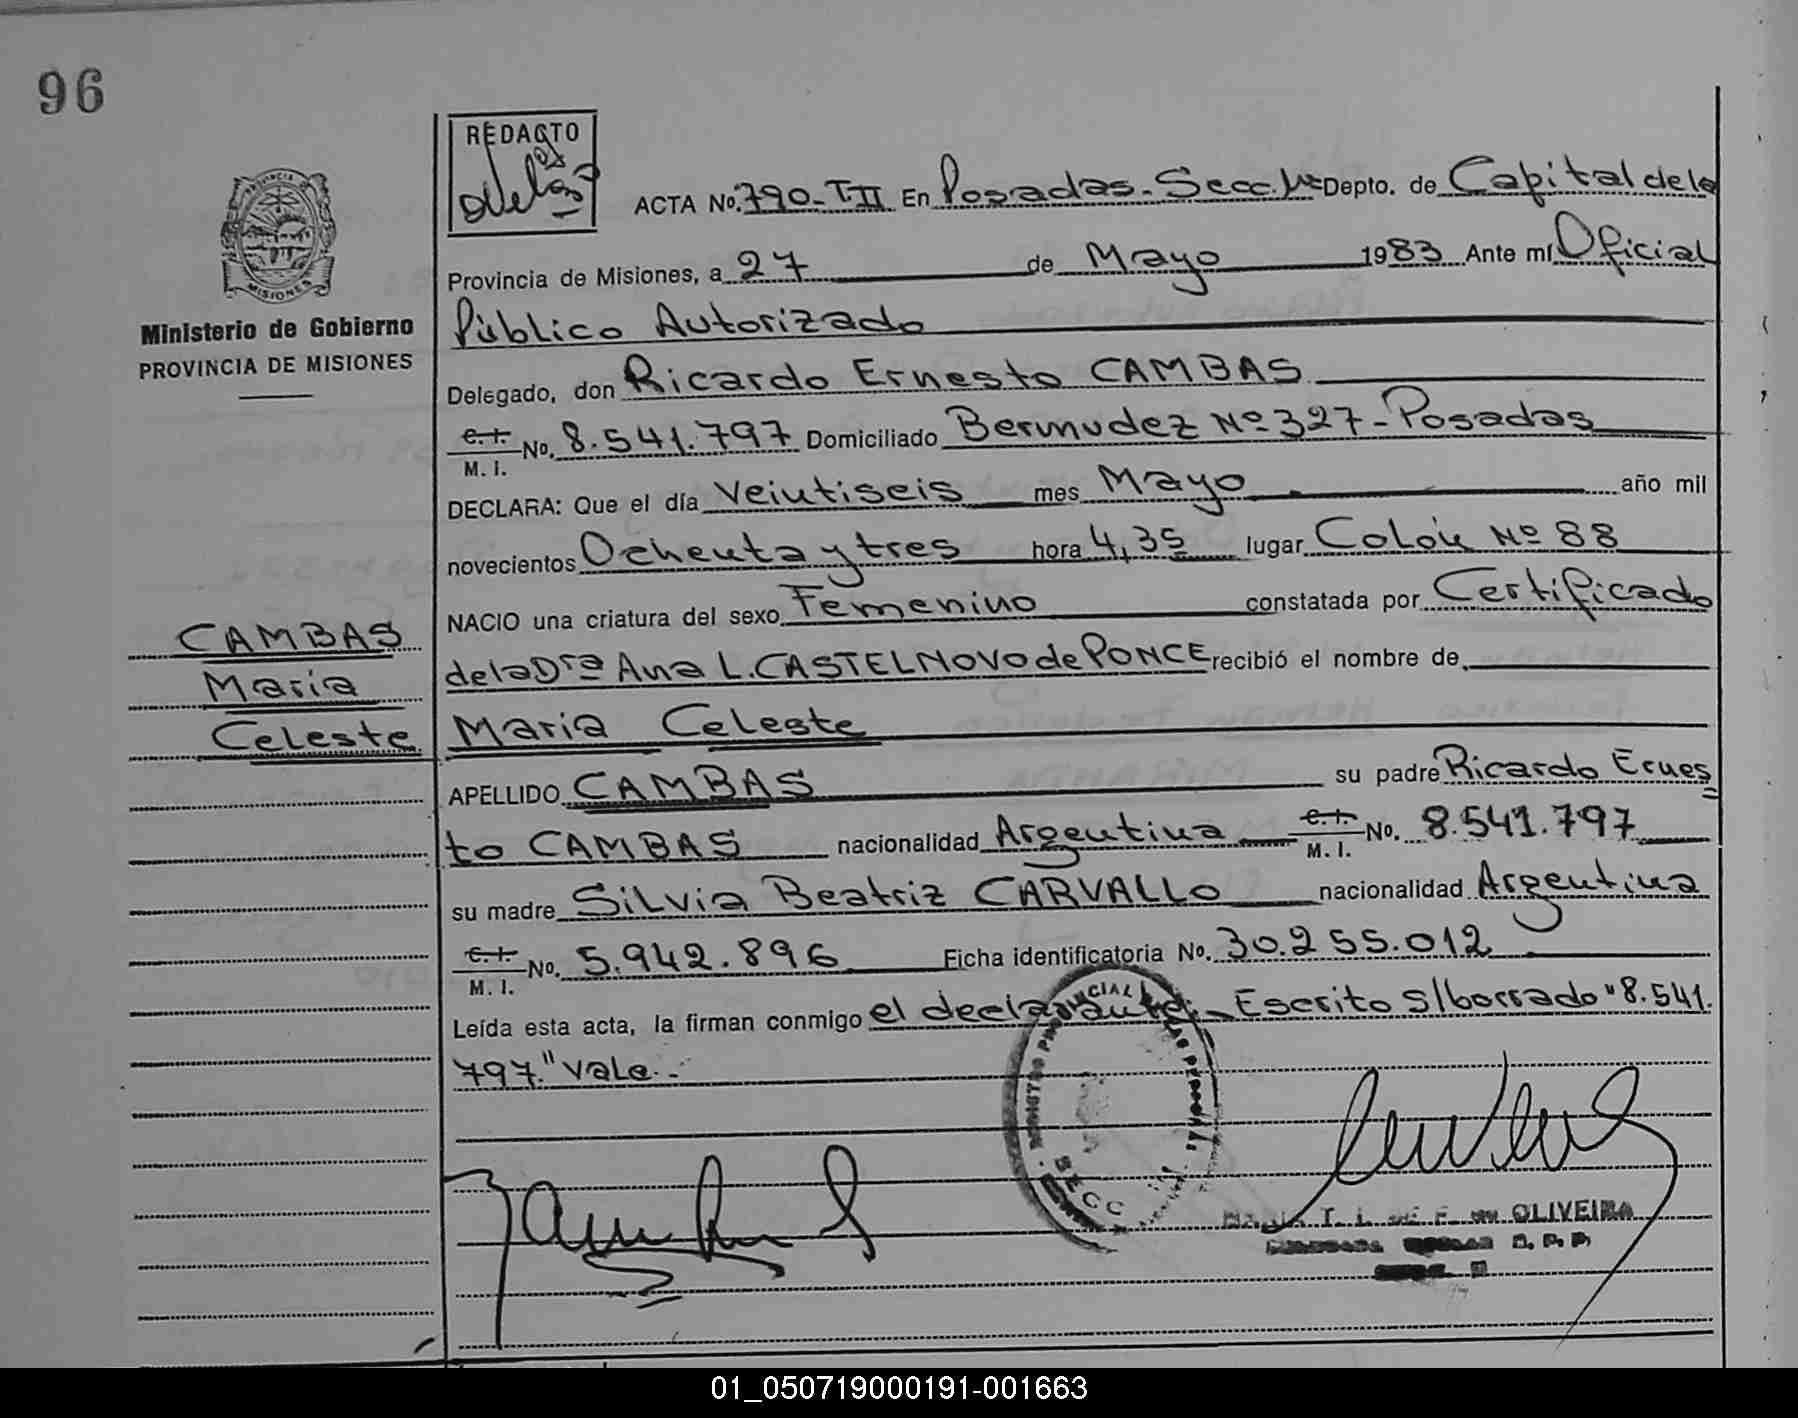 96
REDACTO
ACTA No. 790-T-II En Posadas-Secc. 1ª Depto. de Capital de la
Provincia de Misiones, a 27 de Mayo 1983 Ante mí Oficial
Público Autorizado
Delegado, don Ricardo Ernesto CAMBAS
C.I. M.I. No. 8.541.797 Domiciliado Bermudez Nº 327-Posadas
DECLARA: Que el día Veintiseis mes Mayo año mil
novecientos Ochenta y tres hora 4,35 lugar Colón Nº 88
NACIO una criatura del sexo Femenino constatada por Certificado
de la Dra Ana L. CASTELNOVO de PONCE recibió el nombre de
Maria Celeste
APELLIDO CAMBAS su padre Ricardo Ernes
to CAMBAS nacionalidad Argentina C.I. M.I. No. 8.541.797
su madre Silvia Beatriz CARVALLO nacionalidad Argentina
C.I. M.I. No. 5.942.896 Ficha identificatoria No. 30.255.012
Leída esta acta, la firman conmigo el declarante.- Escrito s/borrado "8.541.
797." Vale.-
PROVINCIA
MISIONES
Ministerio de Gobierno
PROVINCIA DE MISIONES
CAMBAS
Maria
Celeste
REGISTRO PROVINCIAL DE LAS PERSONAS
SECC
OLIVEIRA
01_050719000191-001663